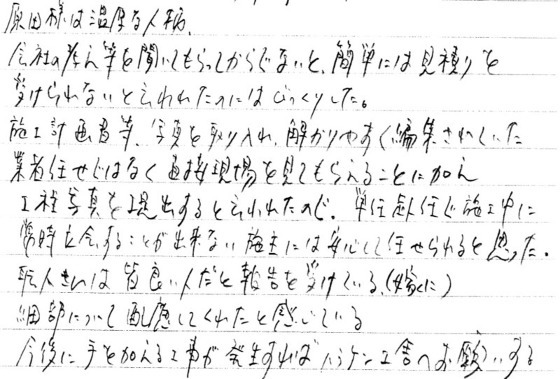 原田様は温厚な人柄、
会社の考え等を聞いてもらってからでないと、簡単には見積りを
受けられないと云われたのにはびっくりした。
施工計画書等、写真を取り入れ、解かりやすく編集されていた
業者任せではなく直接現場を見てもらえることに加え
工程写真を提出すると云われたので、単任赴任で施工中に
常時立会することが出来ない施主には安心して任せられると思った。
職人さんは皆良い人だと報告を受けている、(嫁に)
細部について配慮してくれたと感じている
今後に手を加える工事が発生すればハラケン工舎へお願いする